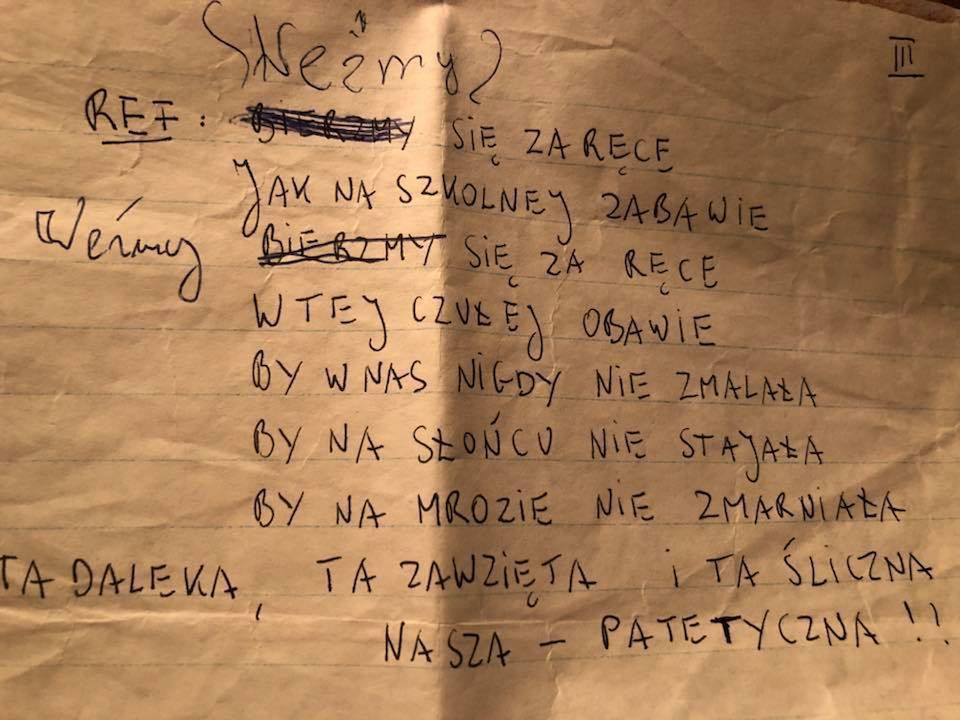 Weźmy
III
REF: BIERZMY SIĘ ZA RĘCE
JAK NA SZKOLNEJ ZABAWIE
Weźmy BIERZMY SIĘ ZA RĘCE
W TEJ CZUŁEJ OBAWIE
BY W NAS NIGDY NIE ZMALAŁA
BY NA SŁOŃCU NIE STAJAŁA
BY NA MROZIE NIE ZMARNIAŁA
TA DALEKA, TA ZAWZIĘTA i TA ŚLICZNA
NASZA – PATETYCZNA!!